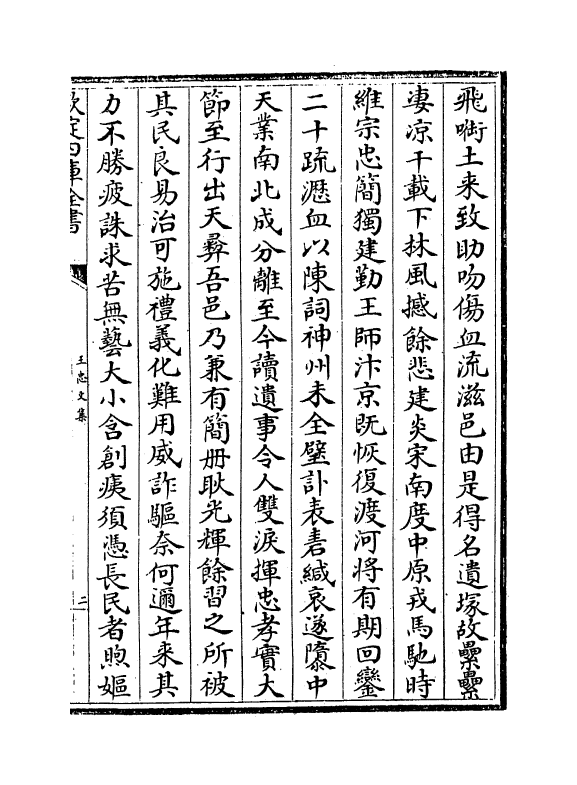 飛啣土来致助吻傷血流滋邑由是得名遺塚故纍纍
凄凉千載下林風撼餘悲建炎宋南度中原戎馬馳時
維宗忠簡獨建勤王師汴京既恢復渡河將有期回鑾
二十疏瀝血以陳詞神州未全璧訃表書緘哀遂隳中
天業南北成分離至今讀遺事令人雙淚揮忠孝實大
節至行出天彞吾邑乃兼有簡册耿光輝餘習之所被
其民良易治可施禮義化難用威詐驅奈何邇年来其
力不勝疲誅求苦無藝大小含創痍須憑長民者煦嫗
欽定四庫全書
王忠文集
二